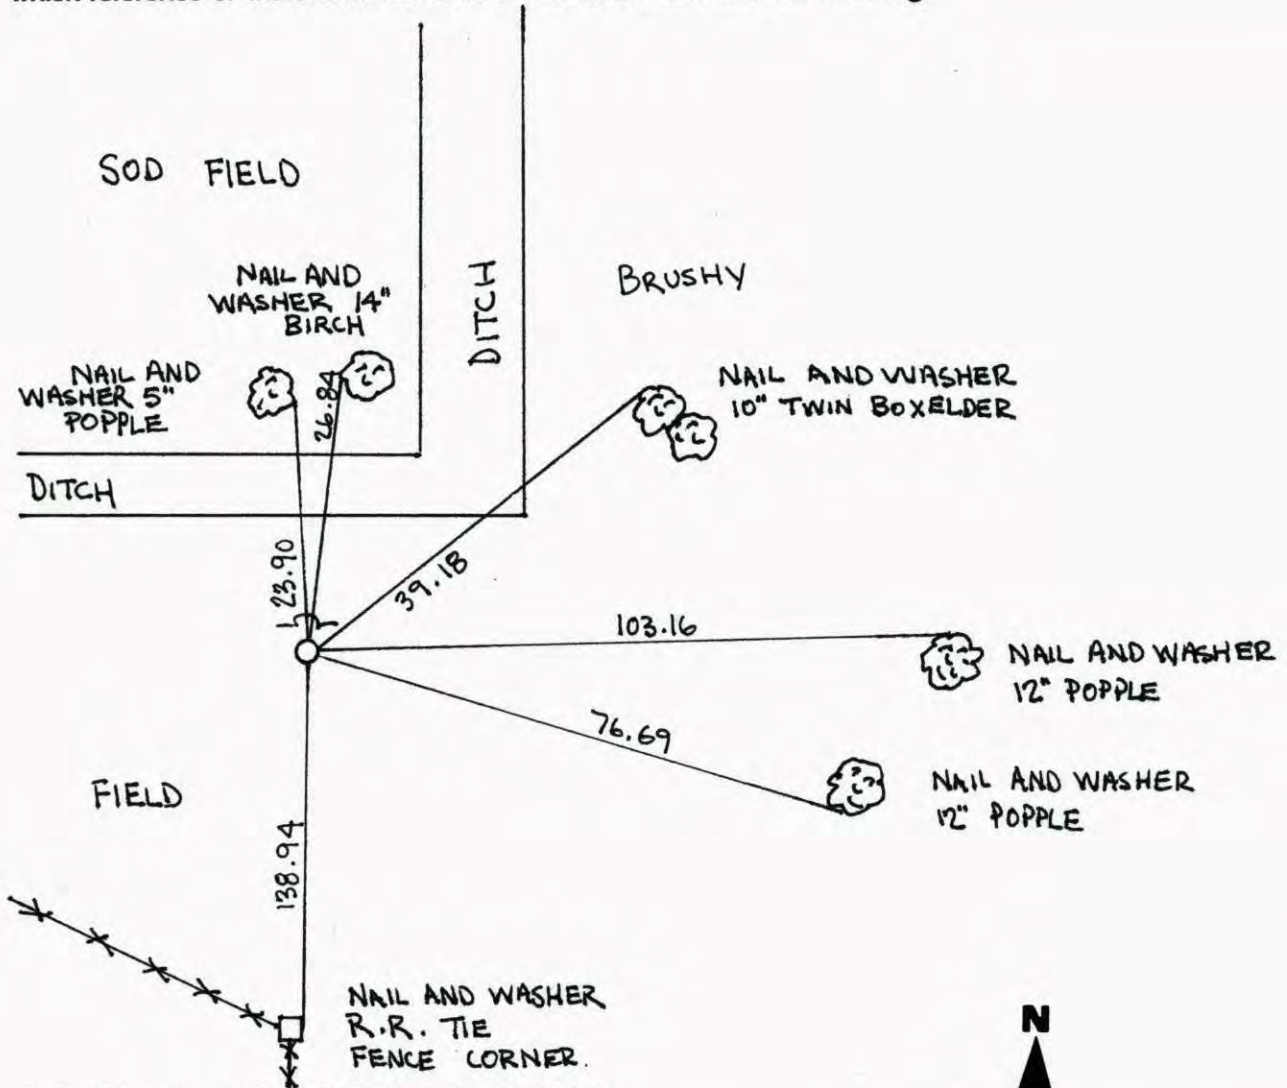 SOD FIELD
NAIL AND
WASHER 14"
BIRCH
DITCH
BRUSHY
NAIL AND
WASHER 5"
POPPLE
26.84
NAIL AND WASHER
10" TWIN BOXELDER
DITCH
23.90
39.18
103.16
NAIL AND WASHER
12" POPPLE
76.69
NAIL AND WASHER
12" POPPLE
FIELD
138.94
NAIL AND WASHER
R.R. TIE
FENCE CORNER.
N